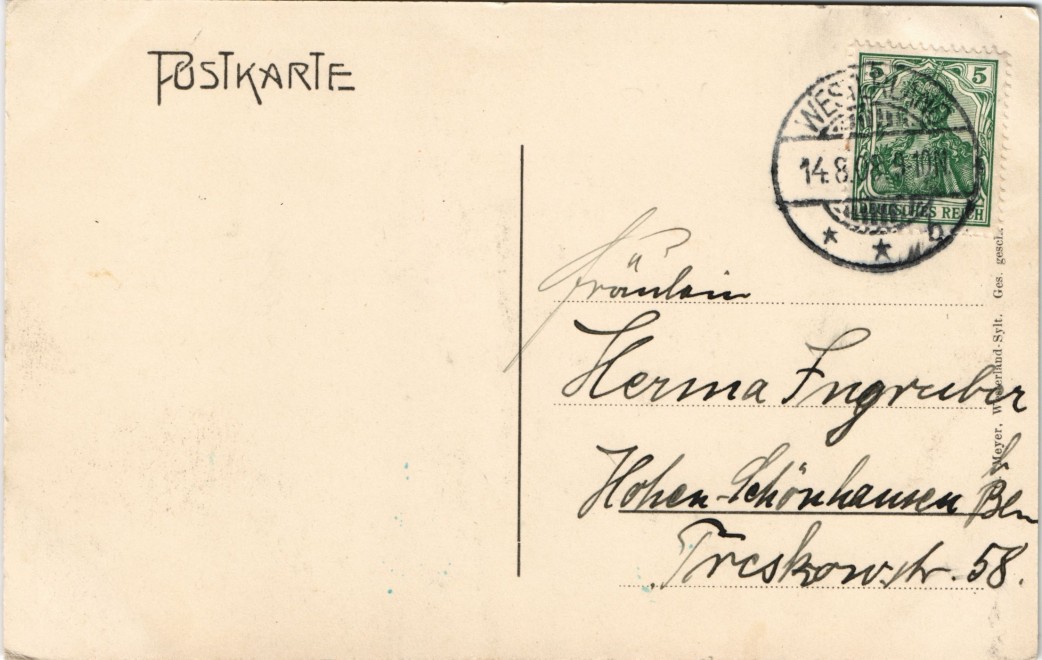 POSTKARTE
5 5
14.8.08. 9-10N
DEUTSCHES REICH
Fräulein
Herma Ingruber
Hohen-Schönhausen b. Bln
Treskowstr. 58.
Meyer, Westerland-Sylt. Ges. gesch.